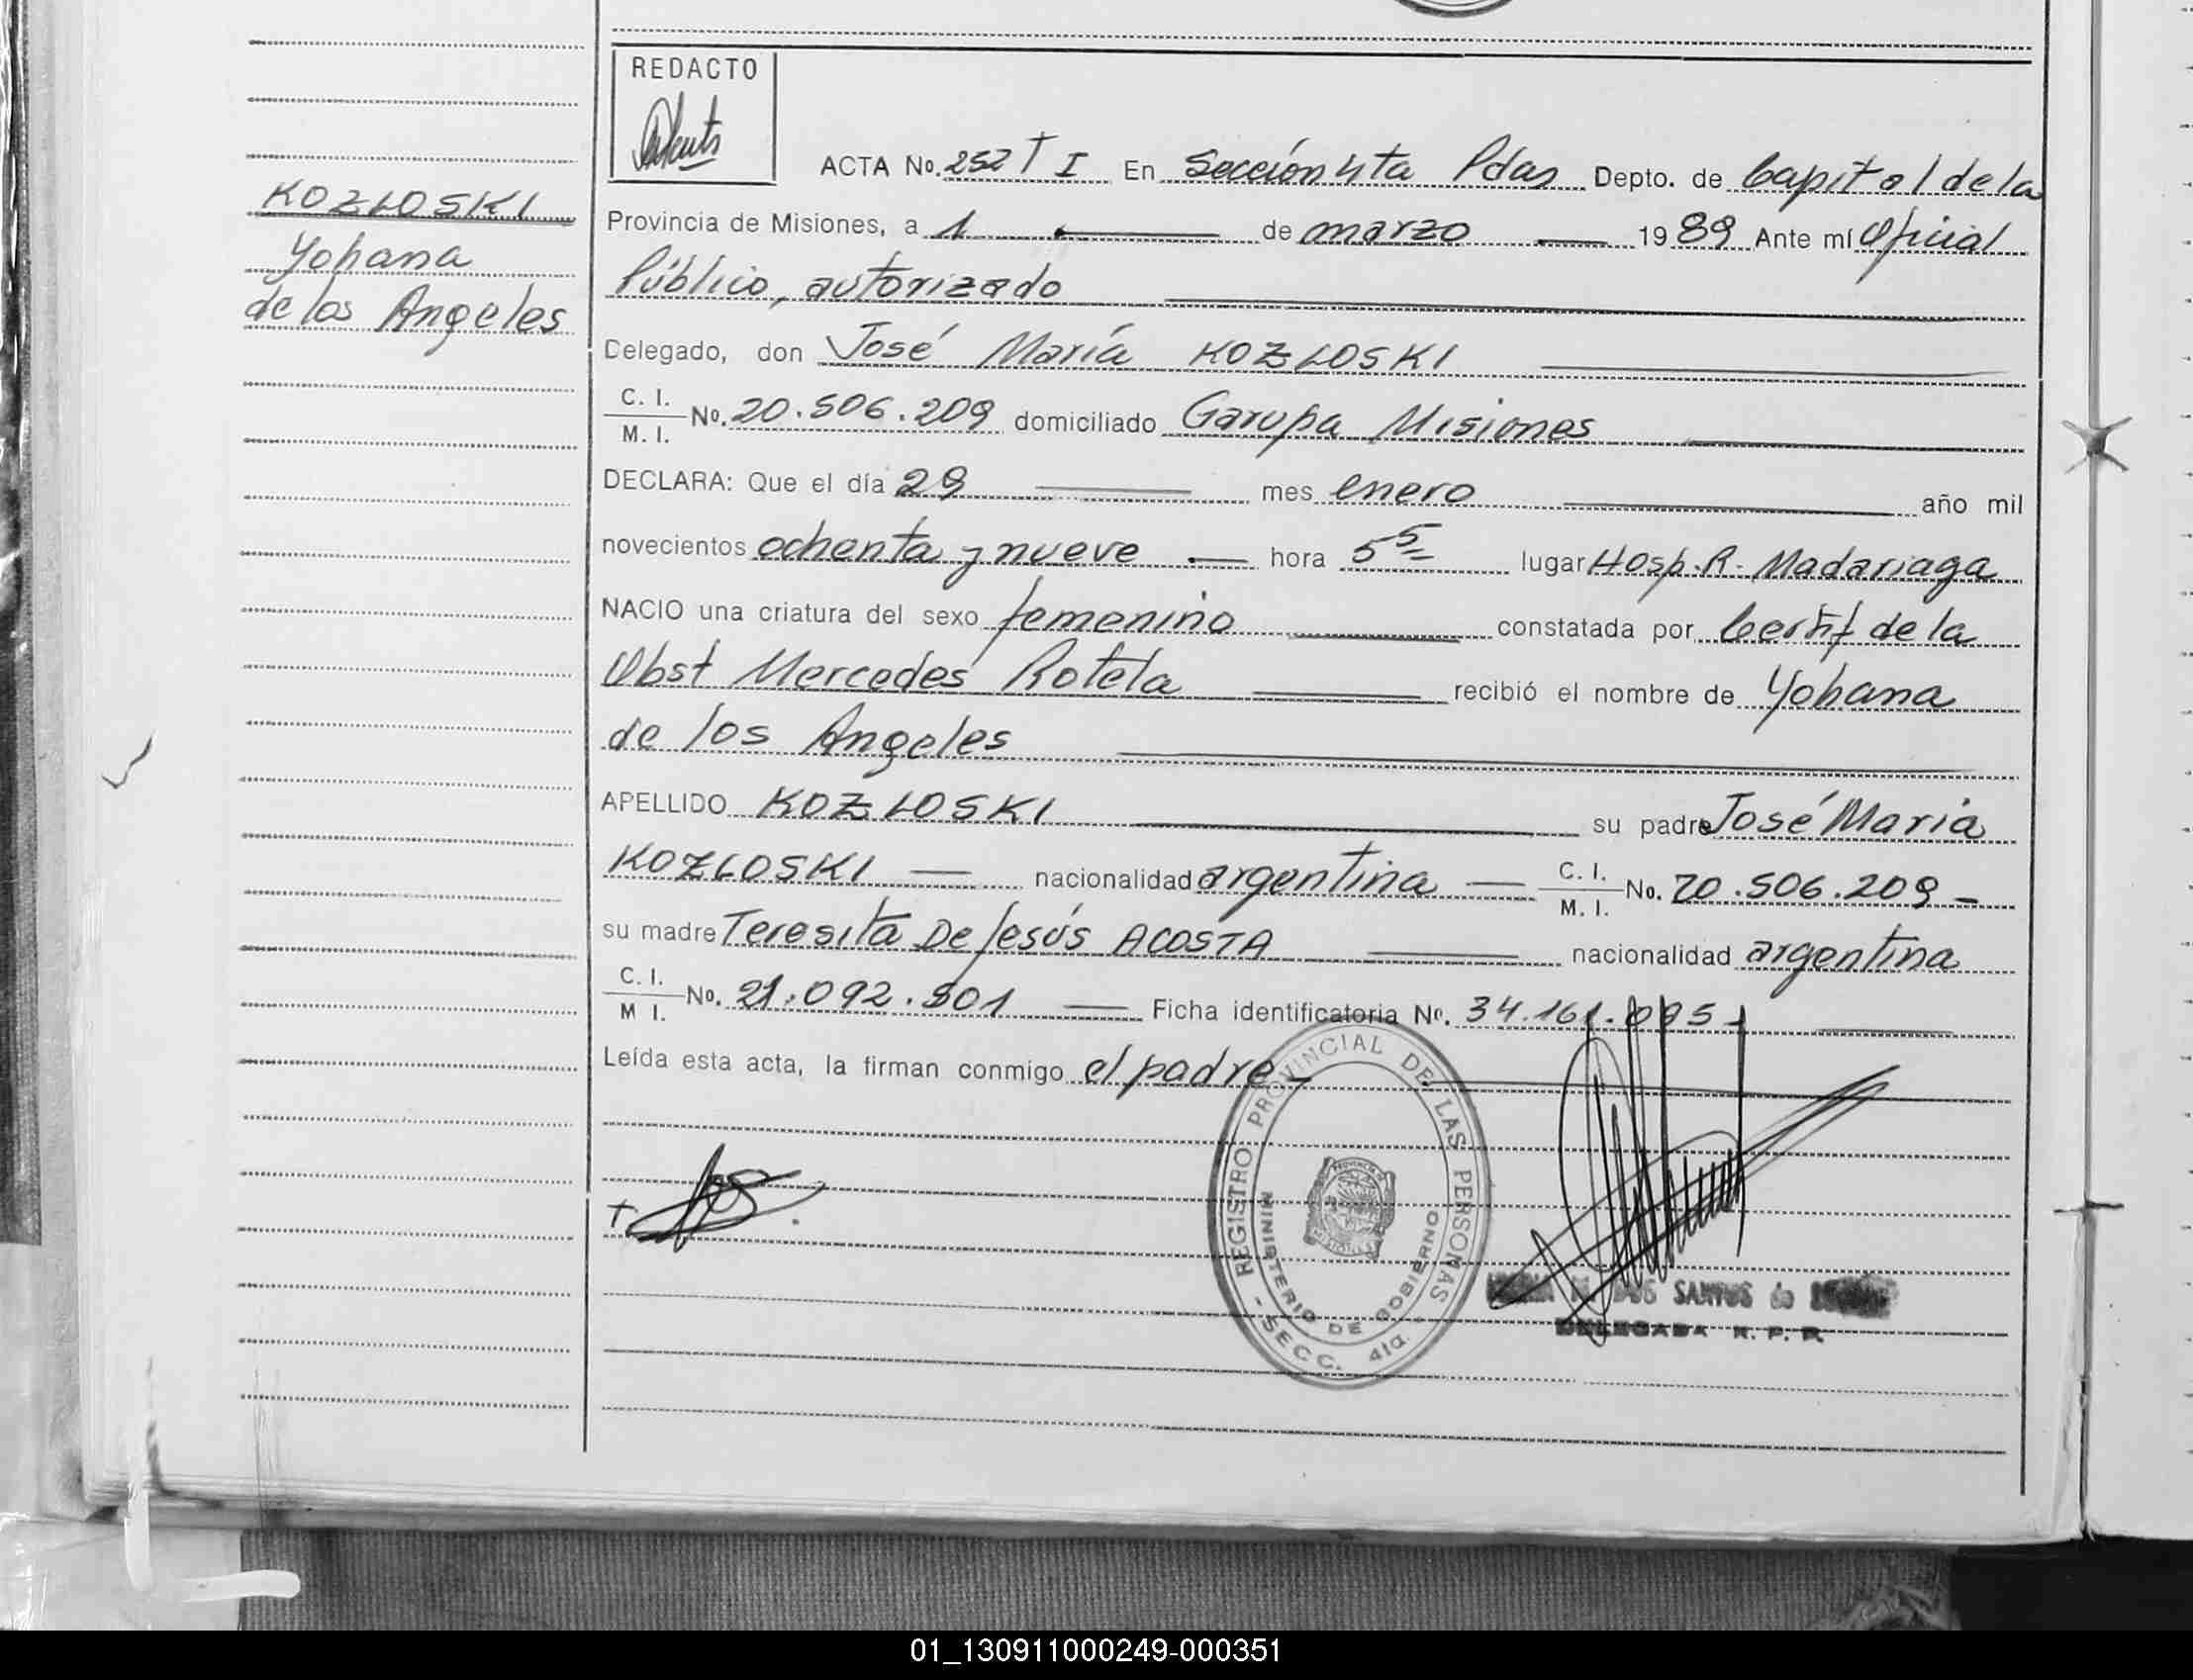 REDACTO
ACTA No. 252 T I En Sección 4ta Pdas Depto. de Capital de la
KOZLOSKI
Provincia de Misiones, a 1 de marzo 1989 Ante mí Oficial
Yohana
Público, autorizado
de los Angeles
Delegado, don José María KOZLOSKI
C. I.
M. I. No. 20.506.209 domiciliado Garupa Misiones
DECLARA: Que el día 29 mes enero año mil
novecientos ochenta y nueve hora 5 5 lugar Hosp. R. Madariaga
NACIO una criatura del sexo femenino constatada por Certif de la
Obst Mercedes Rotela recibió el nombre de Yohana
de los Angeles
APELLIDO KOZLOSKI su padre José María
KOZLOSKI nacionalidad argentina C. I.
M. I. No. 20.506.209
su madre Teresita De Jesús ACOSTA nacionalidad argentina
C. I.
M I. No. 21.092.501 Ficha identificatoria No. 34.161.095
Leída esta acta, la firman conmigo el padre
REGISTRO PROVINCIAL DE LAS PERSONAS
MINISTERIO DE GOBIERNO
- SECC. 4ta. -
PROVINCIA
MISIONES
DOS SANTOS de
DELEGADA R. P. P.
01_130911000249-000351